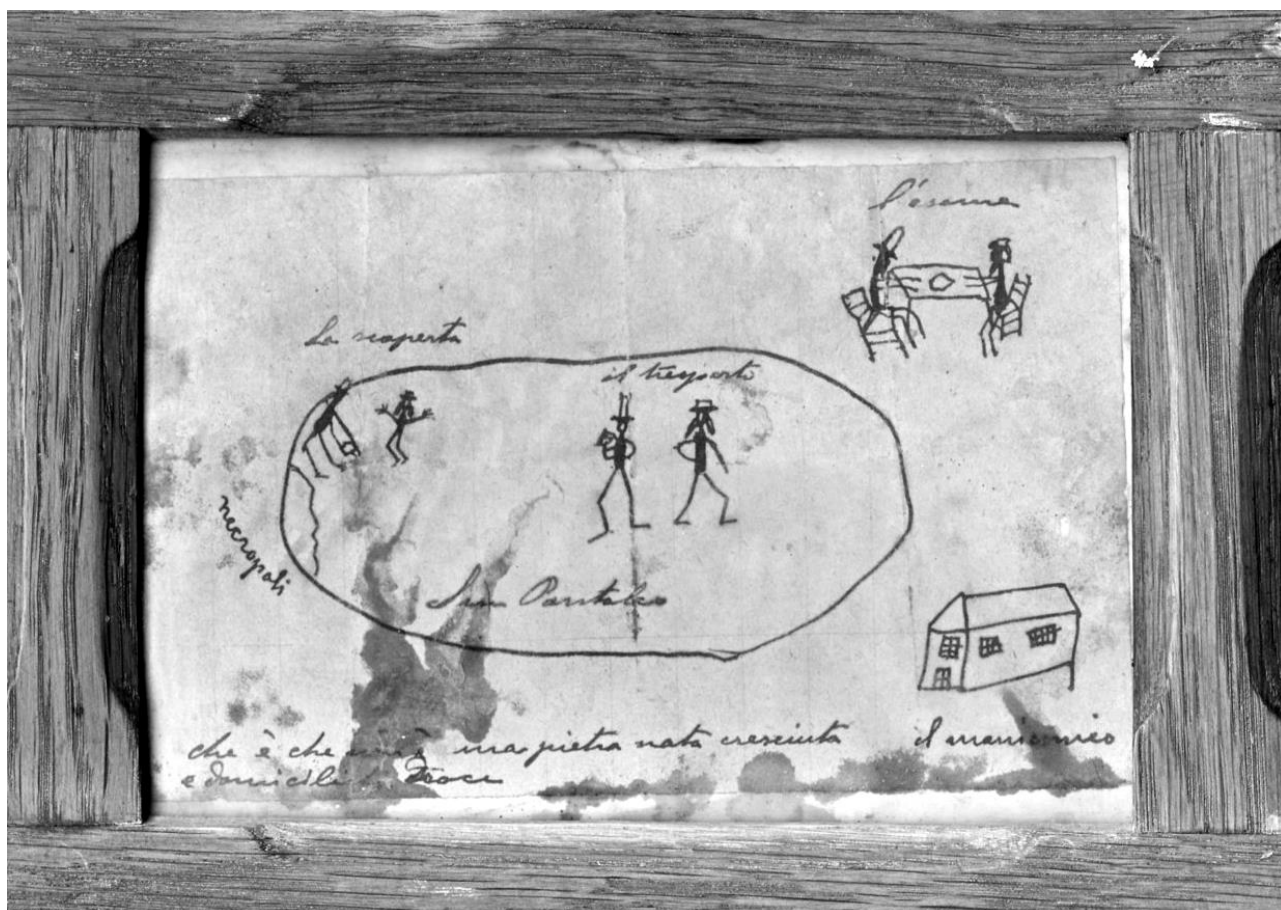 l'esame
La scoperta
il trasporto
necropoli
San Pantaleo
che è che una pietra nata cresciuta
il manicomio
e